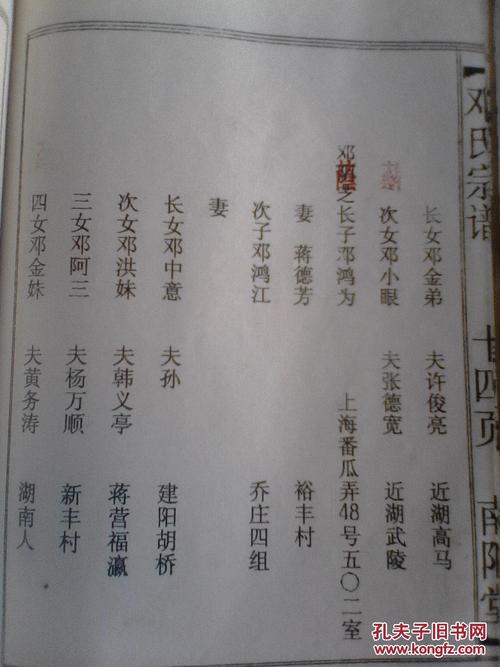 【邓氏宗谱 十四页 南阳堂】
长女邓金弟 夫许俊亮 近湖高马
次女邓小眼 夫张德宽 近湖武陵
邓荫之长子邓鸿为 上海番瓜弄48号五〇二室
妻 蒋德芳 裕丰村
次子邓鸿江 乔庄四组
妻
长女邓中意 夫孙 建阳胡桥
次女邓洪妹 夫韩义亭 蒋营福瀛
三女邓阿三 夫杨万顺 新丰村
四女邓金妹 夫黄务涛 湖南人
孔夫子旧书网
www.kongfz.com